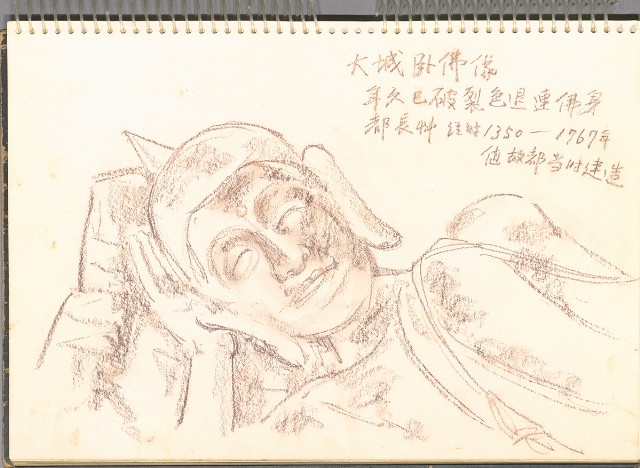 大城卧佛像
年久已破裂色退連佛身
都長艸 经時1350—1767年
值故都当时建造